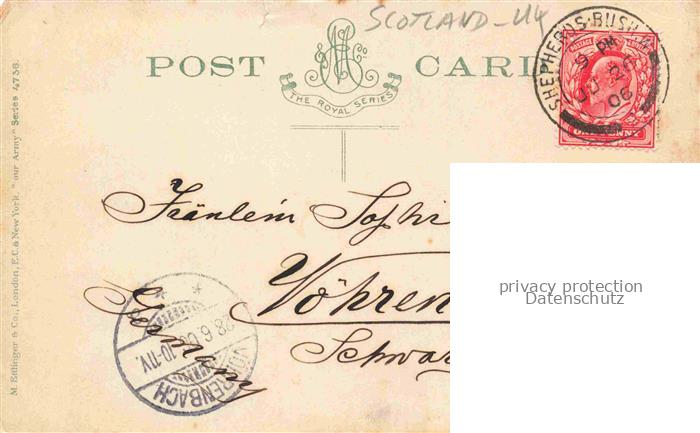 SCOTLAND - U4
POST CARD
THE ROYAL SERIES
SHEPHERDS·BUSH·W
9 PM
26
06
ONE PENNY
M. Ettlinger & Co., London, E.C. & New York. "our Army" Series 4738.
Fräulein Sophi
Vöhren
Germany
Schwar
VÖHRENBACH
28.6.0
10-11V.
privacy protection
Datenschutz